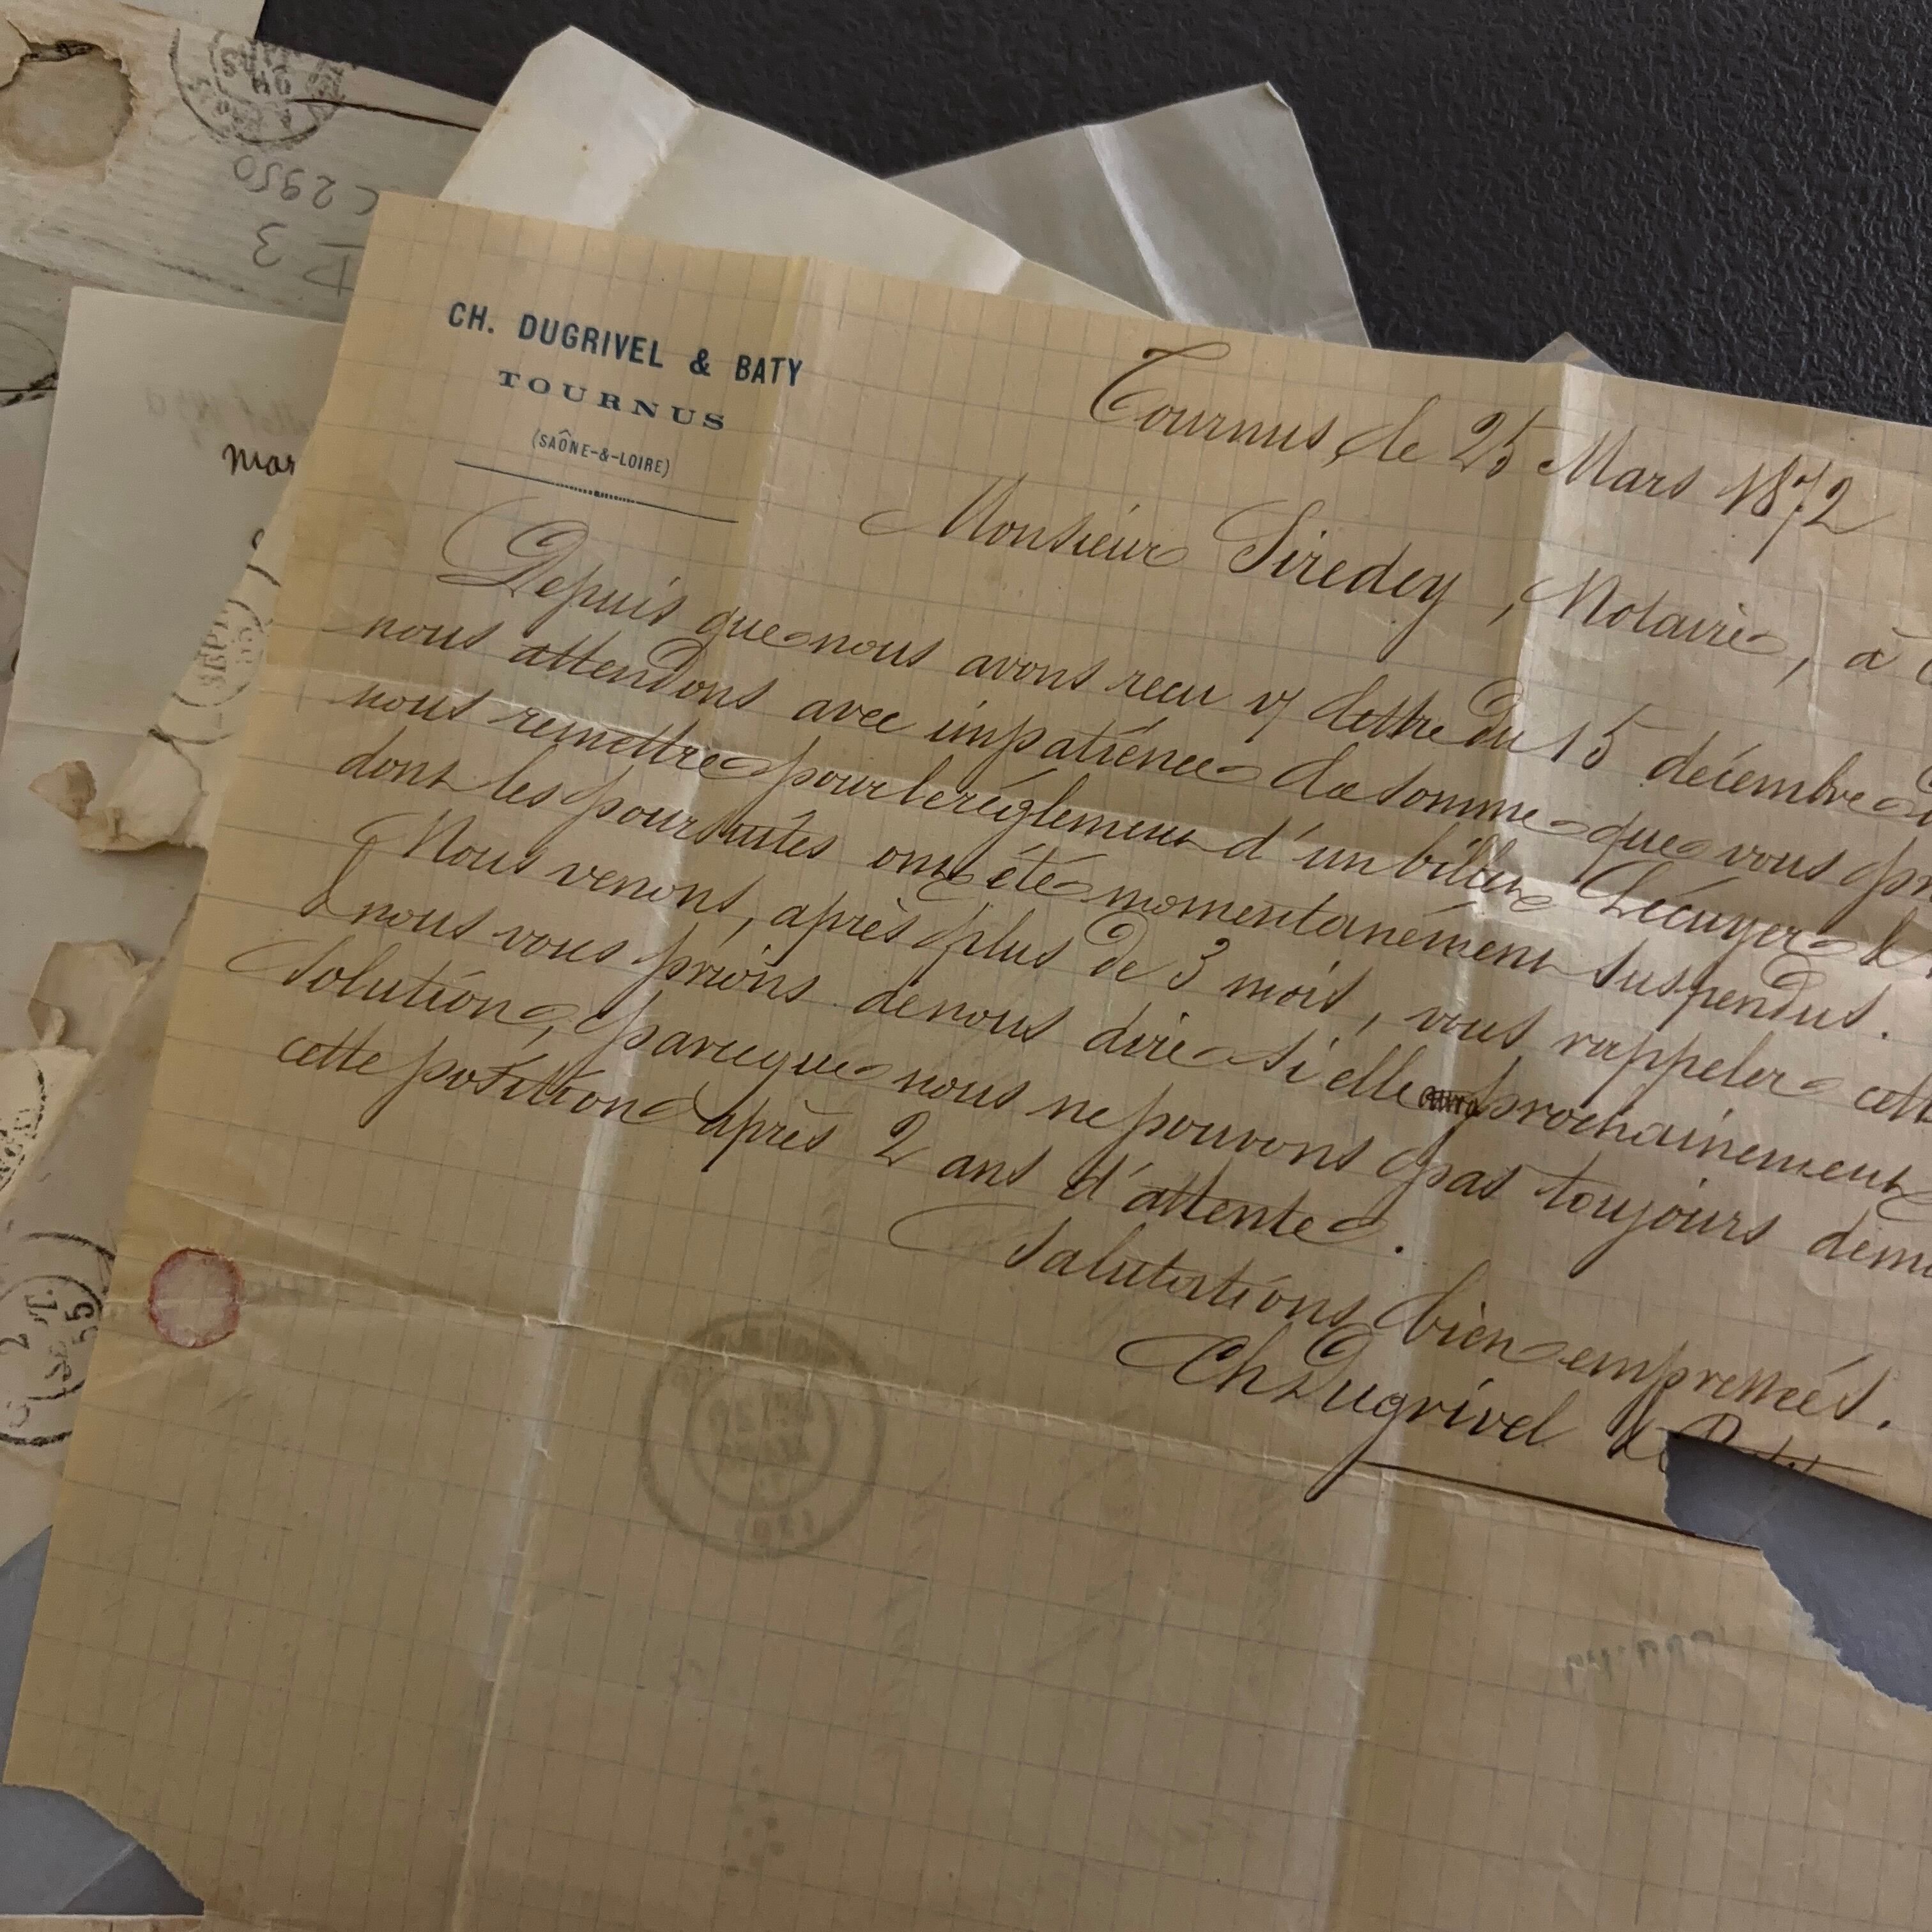 CH. DUGRIVEL & BATY
TOURNUS
(SAÔNE-&-LOIRE)
Tournus, le 25 Mars 1872
Monsieur Siredey, Notaire, à
Depuis que nous avons recu v/ lettre du 15 décembre
nous attendons avec impatience la somme que vous
nous remettre pour le règlement d'un billet Lécuyer &
dont les poursuites ont été momentanément suspendus.
Nous venons, après plus de 3 mois, vous rappeler cette
& nous vous prions de nous dire si elle prochainement
solution, parceque nous ne pouvons pas toujours
cette position après 2 ans d'attente.
Salutations bien empressées.
Ch Dugrivel &
C2950
3
mar
SEPT